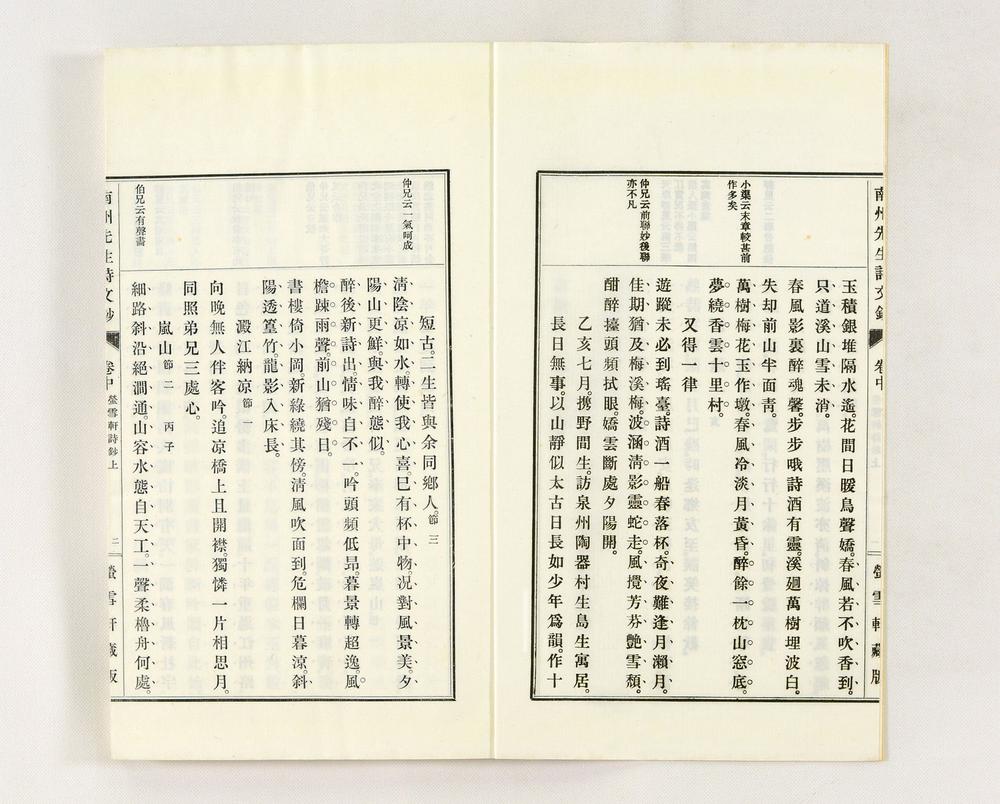 南州先生詩文鈔
卷中
螢雪軒詩鈔上
一
螢雪軒藏版
小蘋云末章較甚前
作多矣
仲兄云前聯妙後聯
亦不凡
玉積銀堆隔水遙。花間日暖鳥聲嬌。春風若不吹香到。
只道溪山雪未消。
春風影裏醉魂馨。步步哦詩酒有靈。溪廻萬樹埋波白。
失却前山半面靑。
萬樹梅花玉作墩。春風冷淡月黃昏。醉餘一枕山窓底。
夢繞香雲十里村。
又得一律
遊蹤未必到瑤臺。詩酒一船春落杯。奇夜難逢月瀨月。
佳期猶及梅溪梅。波涵淸影靈蛇走。風攪芳芬艶雪頹。
酣醉擡頭頻拭眼。嬌雲斷處夕陽開。
乙亥七月。携野間生。訪泉州陶器村生島生寓居。
長日無事。以山靜似太古日長如少年爲韻。作十
短古。二生皆與余同鄕人。節三
仲兄云一氣呵成
淸陰凉如水。轉使我心喜。已有杯中物。況對風景美。夕
陽山更鮮。與我醉態似。
醉後新詩出。情味自不一。吟頭頻低昻。暮景轉超逸。風
檐踈雨聲。前山猶殘日。
書樓倚小岡。新綠繞其傍。淸風吹面到。危欄日暮涼。斜
陽透篁竹。龍影入床長。
澱江納凉節一
向晩無人伴客吟。追凉橋上且開襟。獨憐一片相思月。
同照弟兄三處心。
嵐山節二丙子
伯兄云有聲畫
細路斜沿絕澗通。山容水態自天工。一聲柔櫓舟何處。
南州先生詩文鈔
卷中
螢雪軒詩鈔上
二
螢雪軒藏版